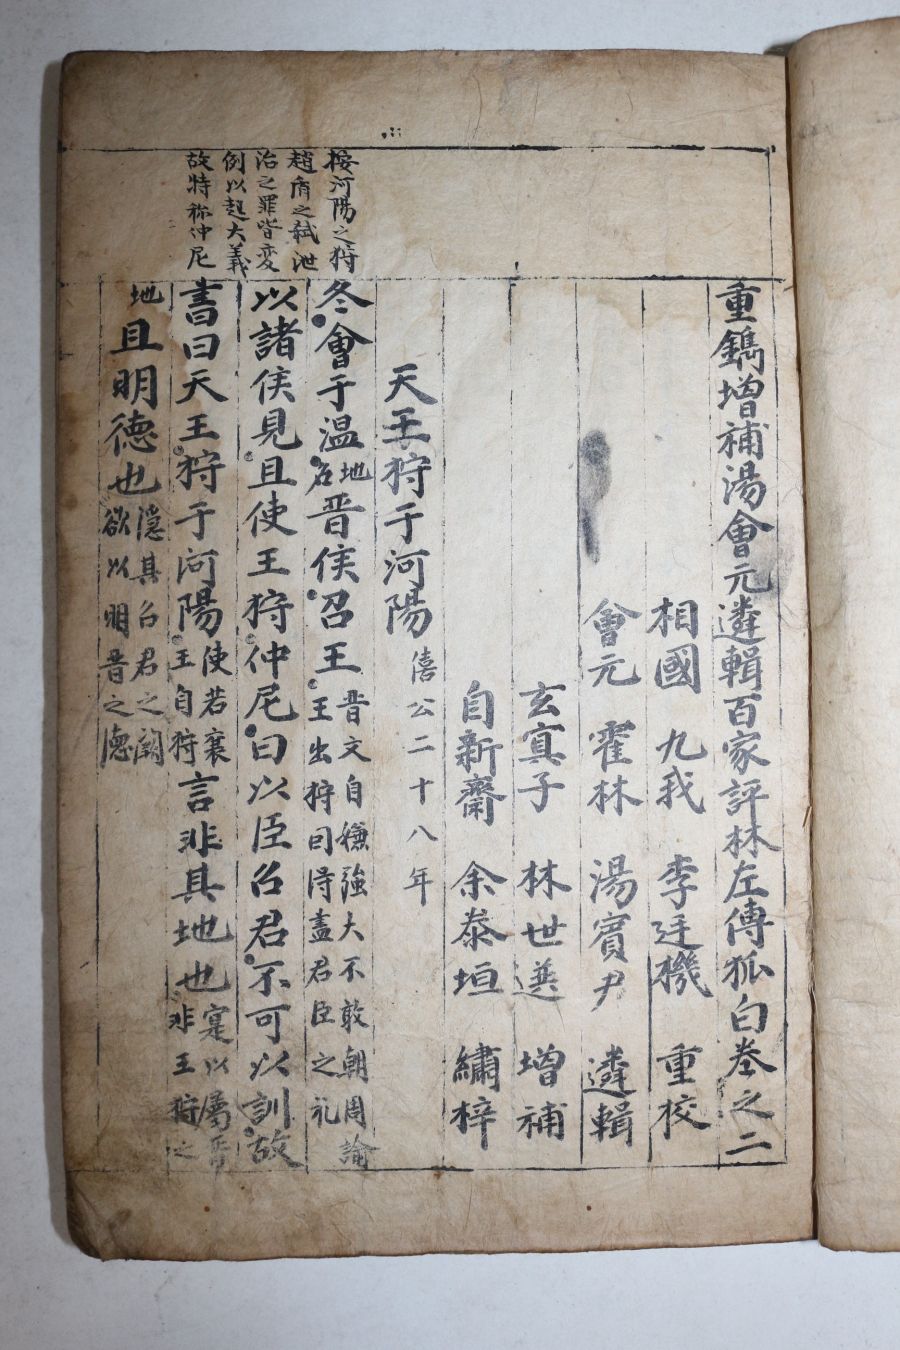 重鐫增補湯會元遴輯百家評林左傳狐白卷之二
相國 九我 李廷機 重校
會元 霍林 湯賓尹 遴輯
玄寘子 林世選 增補
自新齋 余泰垣 繡梓
天王狩于河陽 僖公二十八年
按河陽之狩
趙盾之弑泄
治之罪皆変
例以起大義
故特称仲尼
冬會于温地名晋侯召王晋文自嫌強大不敢朝周諭王出狩囙得盡君臣之礼
以諸侯見且使王狩仲尼曰以臣召君不可以訓故
書曰天王狩于河陽使若襄王自狩言非其地也寔以屬晋非王狩之
地且明德也隠其召君之闕欲以明晋之德